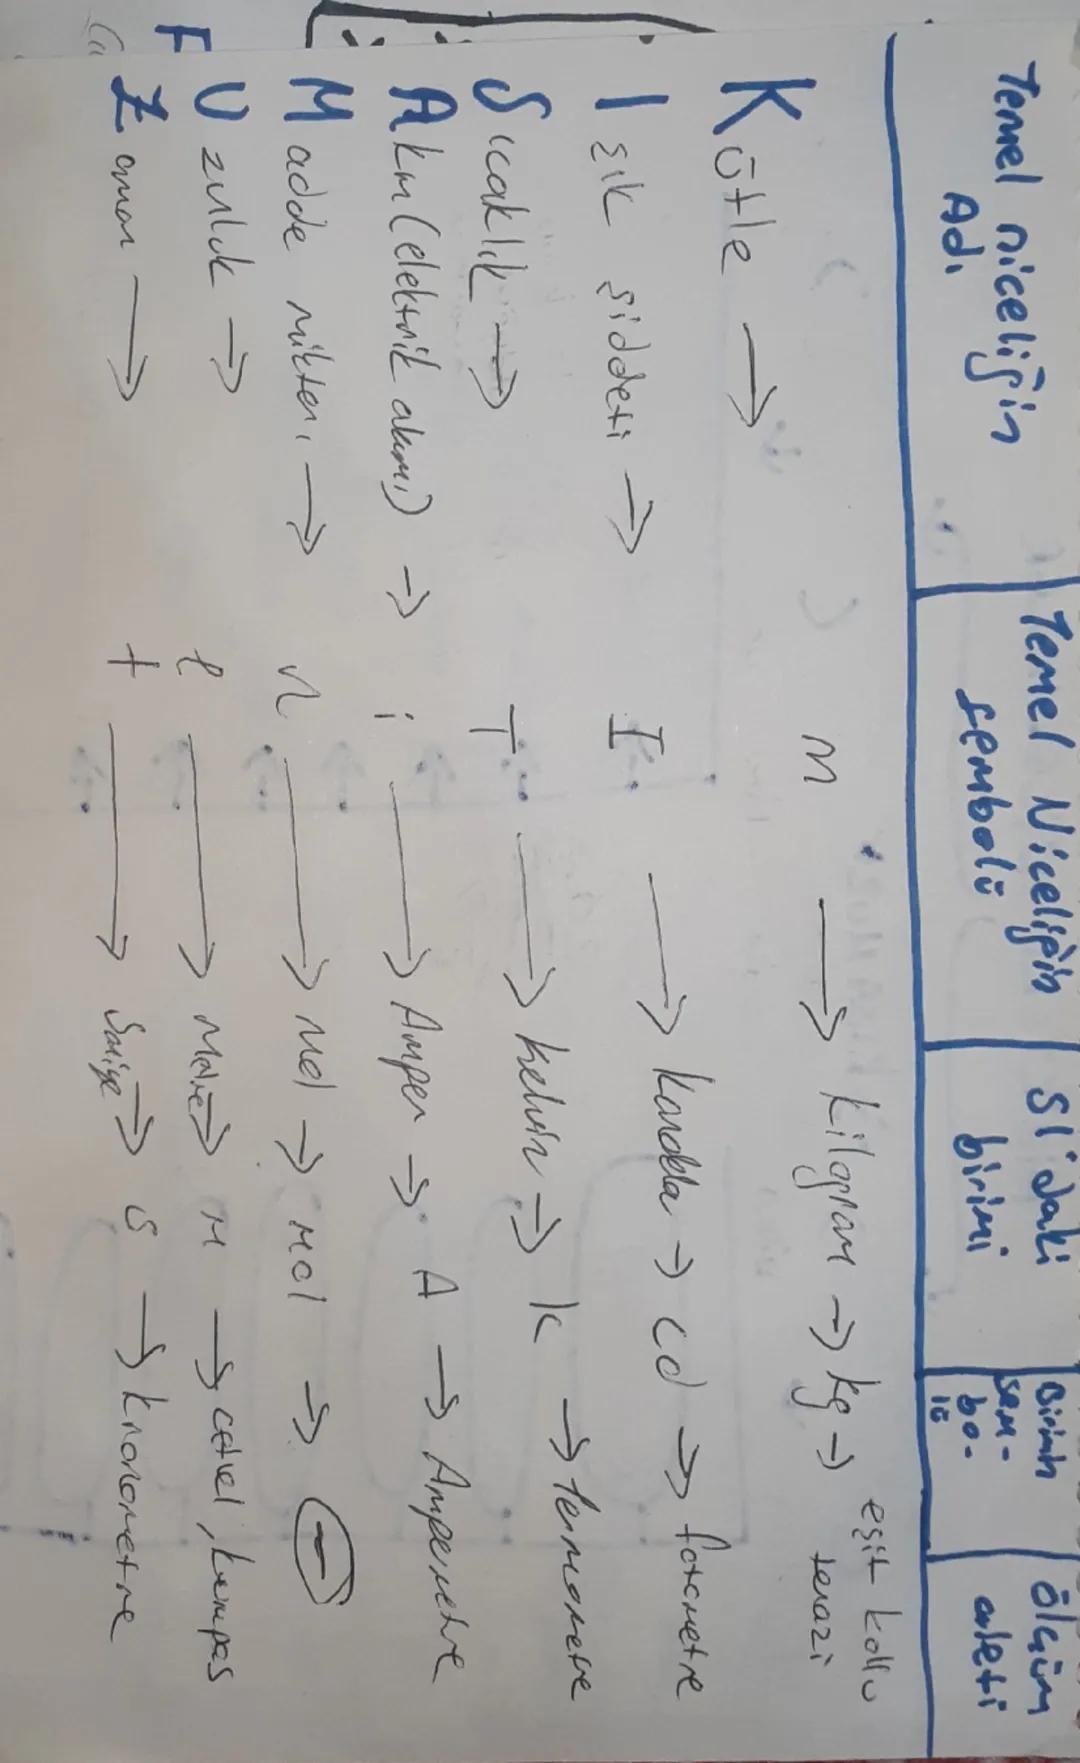 Temel niceliğin Adı | Temel Niceliğin sembolü | SI'daki birimi | Birimin sem-bo-lü | ölçüm aleti
Kütle → m → kilogram → kg → eşit kollu terazi
Işık şiddeti → I → kandela → cd → fotometre
Sıcaklık → T → kelvin → K → termometre
Akım (elektrik akımı) → i → Amper → A → Ampermetre
Madde miktarı → n → Mol → mol → (-)
Uzunluk → l → Metre → m → cetvel, kumpas
Zaman → t → Saniye → s → kronometre
F